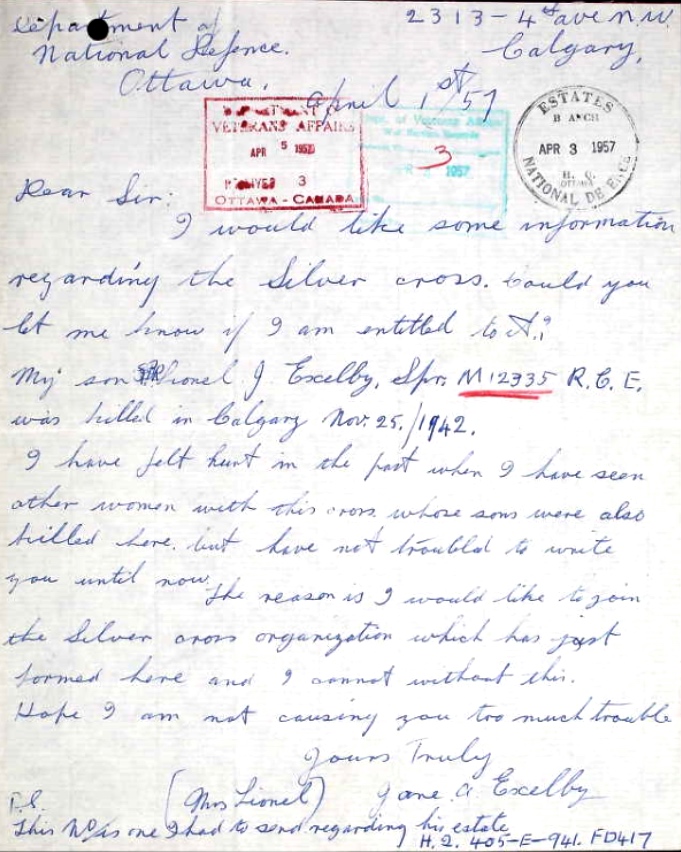 Department of
National Defence.
Ottawa.
2313-4th ave N.W.
Calgary,
April 1st/57
DEPARTMENT OF
VETERANS AFFAIRS
APR 5 1957
RECEIVED 3
OTTAWA - CANADA
Dept. of Veterans Affairs
3
1957
ESTATES
BRANCH
APR 3 1957
H. Q.
OTTAWA
NATIONAL DEFENCE
Dear Sir:
I would like some information
regarding the Silver cross. Could you
let me know if I am entitled to it.?
My son Lionel J. Excelby, Spr. M12335 R.C.E.
was killed in Calgary Nov. 25./1942.
I have felt hurt in the past when I have seen
other women with this cross whose sons were also
killed here. but have not troubled to write
you until now.
The reason is I would like to join
the Silver cross organization which has just
formed here and I cannot without this.
Hope I am not causing you too much trouble
Yours Truly
(Mrs Lionel) Jane A. Excelby
P.S.
This No is one I had to send regarding his estate
H.Q. 405-E-941. FD417